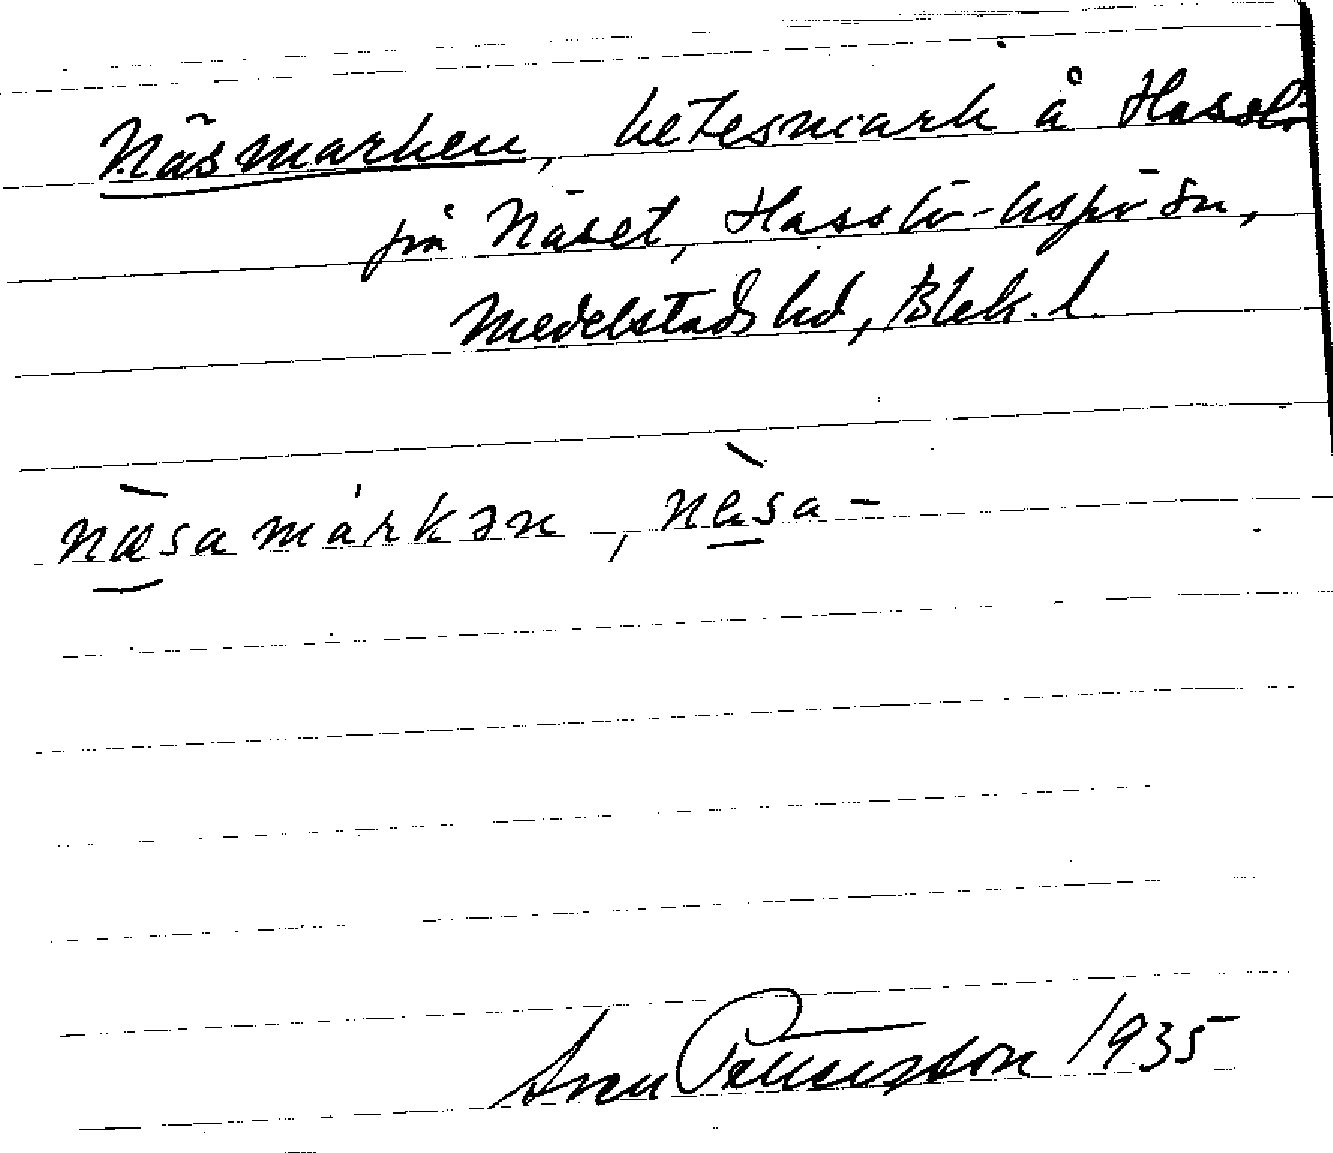 Näsmarken, betesmark å Hasslö
på Näset, Hasslö-Aspö sn,
Medelstads hd, Blek. l.
næ̀samárkən, næ̀sa-
Sven Pettersson 1935